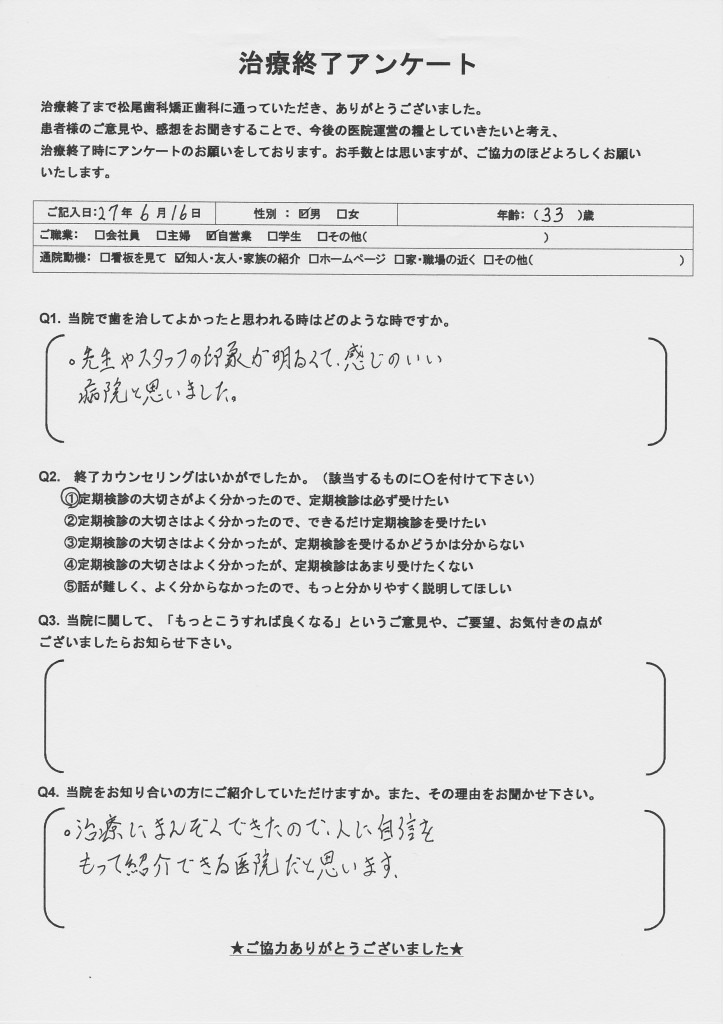 治療終了アンケート
治療終了まで松尾歯科矯正歯科に通っていただき、ありがとうございました。
患者様のご意見や、感想をお聞きすることで、今後の医院運営の糧としていきたいと考え、
治療終了時にアンケートのお願いをしております。お手数とは思いますが、ご協力のほどよろしくお願い
いたします。
ご記入日:27年 6月16日 性別 : ☑男 □女 年齢:( 33 )歳
ご職業: □会社員 □主婦 ☑自営業 □学生 □その他( )
通院動機: □看板を見て ☑知人・友人・家族の紹介 □ホームページ □家・職場の近く □その他( )
Q1. 当院で歯を治してよかったと思われる時はどのような時ですか。
。先生やスタッフの印象が明るくて、感じのいい
病院と思いました。
Q2. 終了カウンセリングはいかがでしたか。(該当するものに〇を付けて下さい)
①定期検診の大切さがよく分かったので、定期検診は必ず受けたい
②定期検診の大切さはよく分かったので、できるだけ定期検診を受けたい
③定期検診の大切さはよく分かったが、定期検診を受けるかどうかは分からない
④定期検診の大切さはよく分かったが、定期検診はあまり受けたくない
⑤話が難しく、よく分からなかったので、もっと分かりやすく説明してほしい
Q3. 当院に関して、「もっとこうすれば良くなる」というご意見や、ご要望、お気付きの点が
ございましたらお知らせ下さい。
Q4. 当院をお知り合いの方にご紹介していただけますか。また、その理由をお聞かせ下さい。
。治療にまんぞくできたので、人に自信を
もって紹介できる医院だと思います、
★ご協力ありがとうございました★